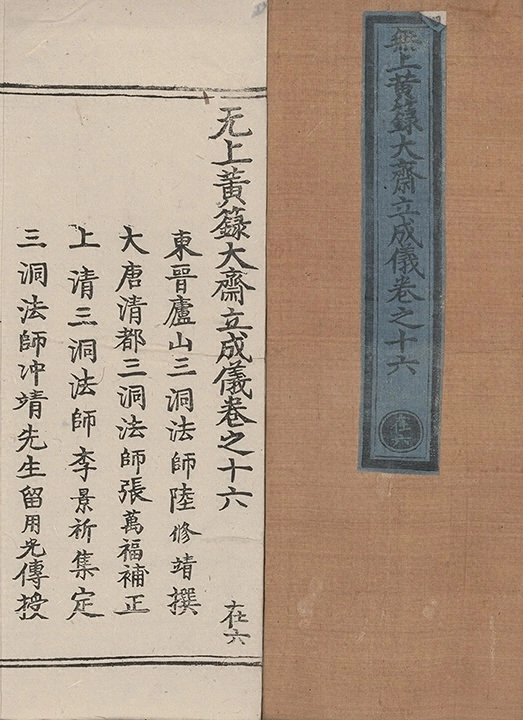 無上黃籙大齋立成儀卷之十六
在六
无上黃籙大齋立成儀卷之十六
在六
東晉廬山三洞法師陸修靖撰
大唐清都三洞法師張萬福補正
上清三洞法師李景祈集定
三洞法師冲靖先生留用光傳授